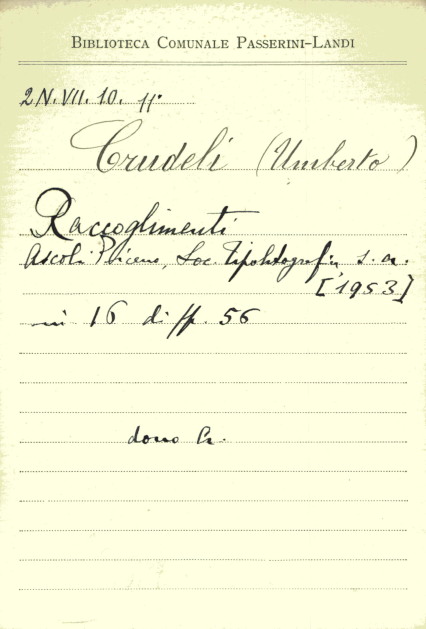 BIBLIOTECA COMUNALE PASSERINI-LANDI
2N.VII.10. 11°
Crudeli (Umberto)
Raccoglimenti
Ascoli Piceno, Soc. Tipolitografia s. a.
[1953]
in 16 di pp. 56
dono